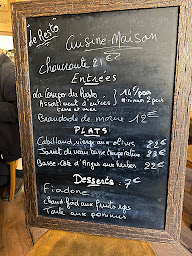 de Resto
Cuisine Maison
Choucroute 21 €
Entrees
Le Comptoir du Resto
Assortiment d'entrées
terre et mer
14€/pers
minimum 2 pers
Brandade de morue 12 €
PLATS
Cabillaud, vierge aux olives 22 €
Jarret de veau basse température 23 €
Basse-Côte d'Angus aux herbes 22 €
Desserts : 7 €
Fiadone
Chaud froid aux fruits rgs
Tarte aux pommes